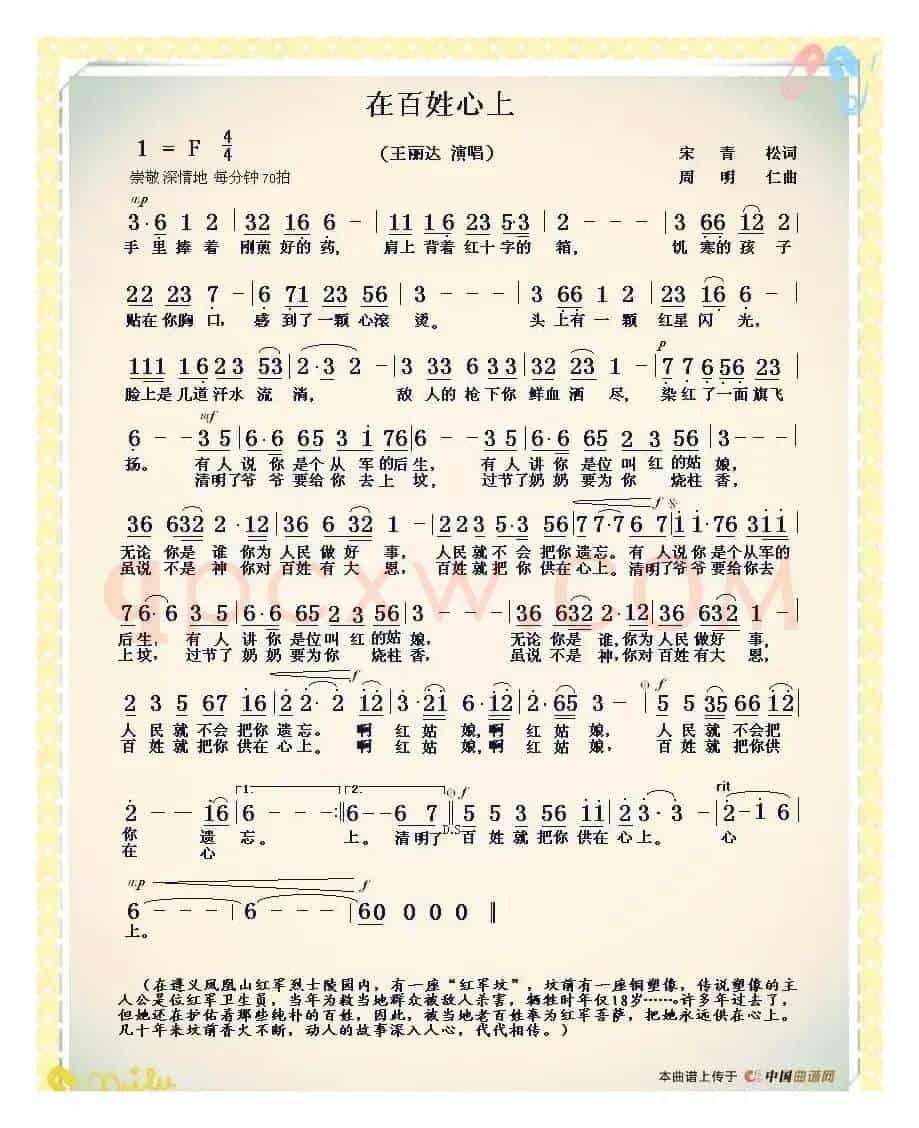 在百姓心上
1 = F 4/4
（王丽达 演唱）
宋 青 松词
崇敬 深情地 每分钟 70拍
周 明 仁曲
mp
3·6 1 2 | 32 16 6 - | 11 16 23 5·3 | 2 - - - | 3 66 12 2 |
手 里 捧 着 刚煎 好的 药， 肩上 背着 红十 字的 箱， 饥 寒的 孩 子
22 23 7 - | 6 71 23 56 | 3 - - - | 3 66 1 2 | 23 16 6 - |
贴在 你胸 口， 感 到了 一颗 心滚 烫。 头 上有 一 颗 红星 闪 光，
p
111 16 23 53 | 2·3 2 - | 3 33 6 33 | 32 23 1 - | 77 6 56 23 |
脸上是 几道 汗水 流 淌， 敌 人的 枪 下你 鲜血 洒 尽， 染红 了 一面 旗飞
mf
6 - - 3 5 | 6·6 65 3 1 76 | 6 - - 3 5 | 6·6 65 2 3 56 | 3 - - - |
扬。 有 人 说 你 是个 从 军 的后 生， 有 人 讲 你 是位 叫 红 的姑 娘，
清明 了 爷 爷 要给 你 去 上 坟， 过节 了 奶 奶 要为 你 烧柱 香，
f
36 632 2·12 | 36 6 32 1 - | 2 23 5·3 56 | 77·7 6 7 | 1 1·76 311 |
无论 你是 谁 你为 人民 做 好 事， 人民 就 不 会 把你 遗忘。有 人 说 你 是个 从军的
虽说 不是 神 你对 百姓 有 大 恩， 百姓 就 把 你 供在 心上。清明 了 爷 爷 要给 你去
76·6 3 5 | 6·6 65 2 3 56 | 3 - - - | 36 632 2·12 | 36 632 1 - |
后生， 有 人 讲 你 是位 叫 红 的姑 娘， 无论 你是 谁，你为 人民 做好 事，
上坟， 过节 了 奶 奶 要为 你 烧柱 香， 虽说 不是 神，你对 百姓 有大 恩，
f
f
2 3 5 67 16 | 2 2·2 12 | 3·21 6·12 | 2·65 3 - | 5 5 35 66 12 |
人 民 就 不会 把你 遗 忘。 啊 红 姑 娘，啊 红 姑 娘， 人 民 就 不会把
百 姓 就 把你 供在 心 上。 啊 红 姑 娘，啊 红 姑 娘， 百 姓 就 把你供
1.
2.
f
rit
2 - - 16 | 6 - - - :‖ 6 - - 6 7 ‖ 5 5 3 56 11 | 2 3·3 - | 2 - 1 6 |
D.S
你 遗 忘。 上。 清明 了 百 姓 就 把你 供在 心 上。 心
在 心
mp
f
6 - - - | 6 - - - | 60 0 0 0 ‖
上。
（在遵义凤凰山红军烈士陵园内，有一座“红军坟”，坟前有一座铜塑像，传说塑像的主
人公是位红军卫生员，当年为救当地群众被敌人杀害，牺牲时年仅18岁……许多年过去了，
但她还在护佑着那些纯朴的百姓，因此，被当地老百姓奉为红军菩萨，把她永远供在心上。
几十年来坟前香火不断，动人的故事深入人心，代代相传。）
qpcxw.COM
nilu
本曲谱上传于 中国曲谱网